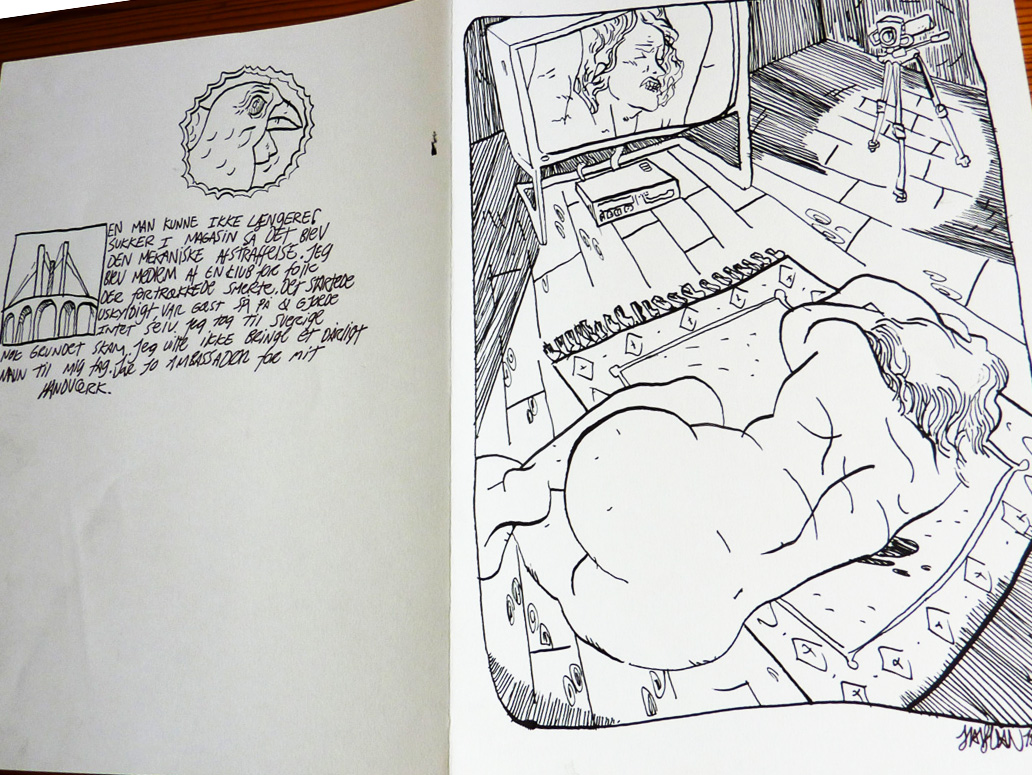 EN MAN KUNNE IKKE LÆNGERE
SUKKER I MAGASIN SÅ DET BLEV
DEN MEKANISKE AFSTRAFFELSE. JEG
BLEV MEDLEM AF EN KLUB FOR FOLK
DER FORTRÆKKEDE SMERTE. DET STARTEDE
USKYLDIGT VAR GÆST SÅ PÅ & GJORDE
INTET SELV. JEG TOG TIL SVERIGE
GRUNDET SKAM. JEG VILLE IKKE BRINGE ET DÅRLIGT
NAVN TIL MIG FAG. JO AMBASSADØR FOR MIT
HÅNDVÆRK.